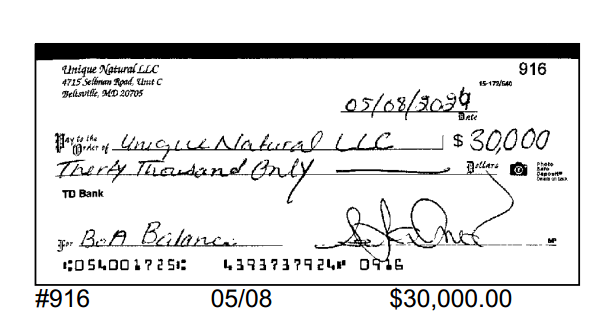 Unique Natural LLC
4715 Sellman Road, Unit C
Beltsville, MD 20705
916
15-173/540
05/08/2024
Date
Pay to the
Order of Unique Natural LLC $ 30,000
Therty Thousand Only Dollars
Photo
Safe
Deposit®
Details on back
TD Bank
For BoA Balance
MP
⑆054001725⑆ 4393737924⑈ 0916
#916 05/08 $30,000.00